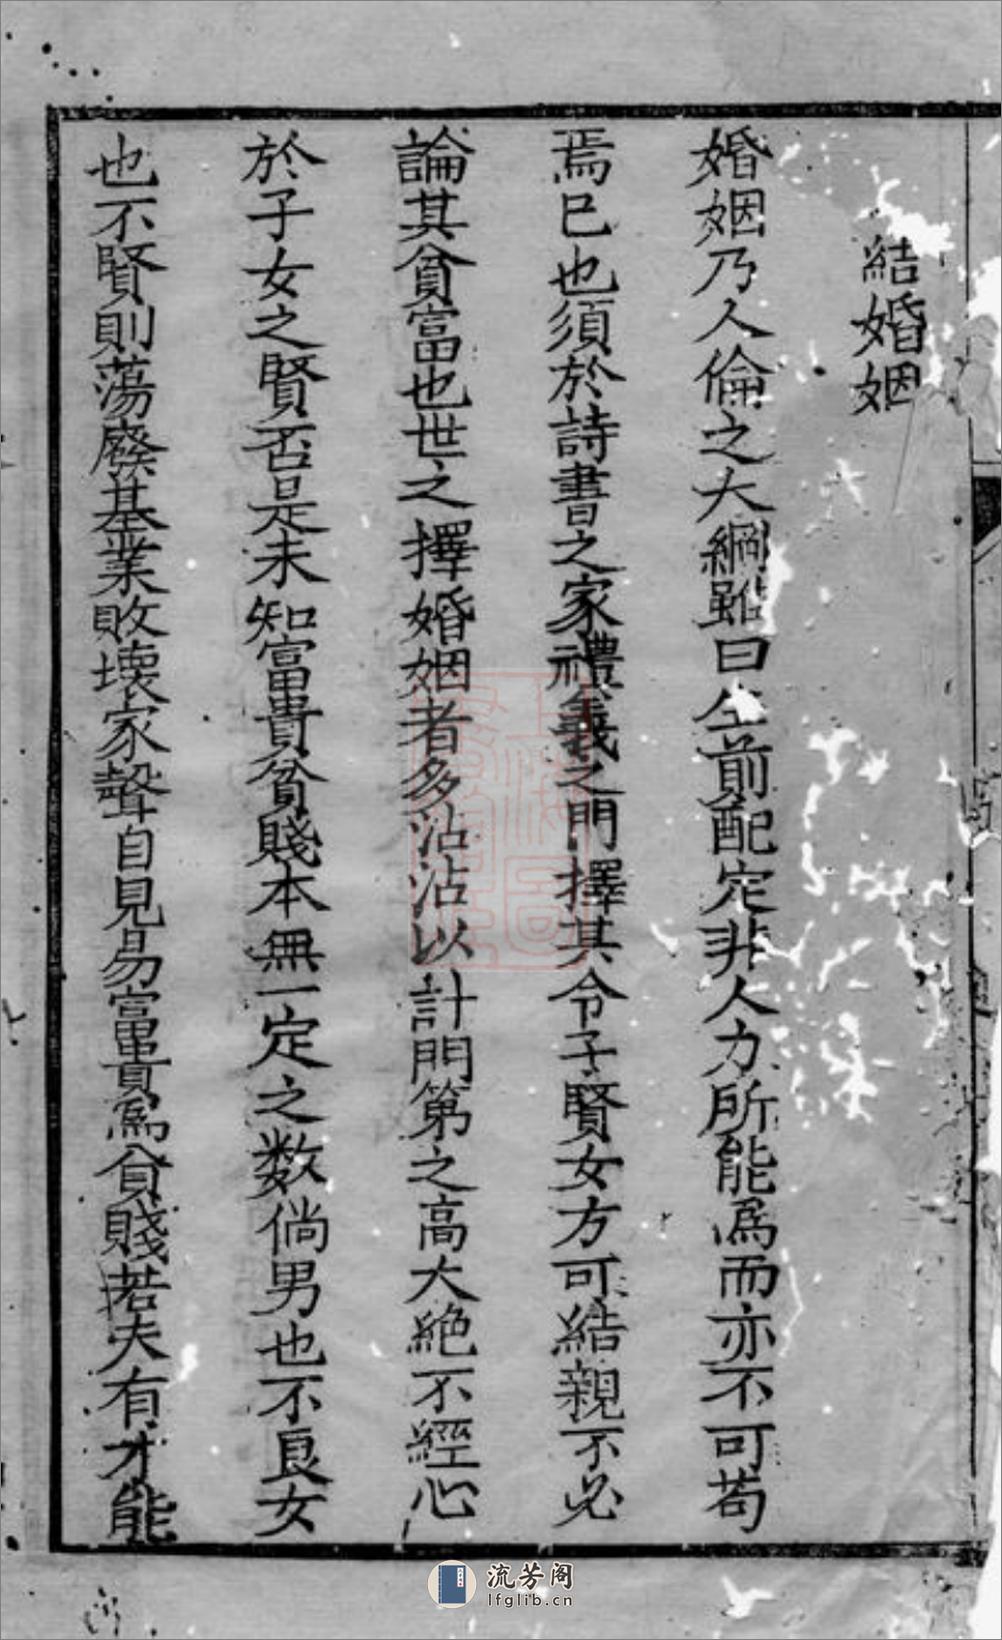 結婚姻
婚姻乃人倫之大綱雖曰生前配定非人力所能爲而亦不可苟
焉已也須於詩書之家禮義之門擇其令子賢女方可結親不必
論其貧富也世之擇婚姻者多沾沾以計門第之高大絶不經心
於子女之賢否是未知富貴貧賤本無一定之数倘男也不良女
也不賢則蕩廢基業敗壞家聲自見易富貴爲貧賤若夫有才能
流芳阁
lfglib.cn